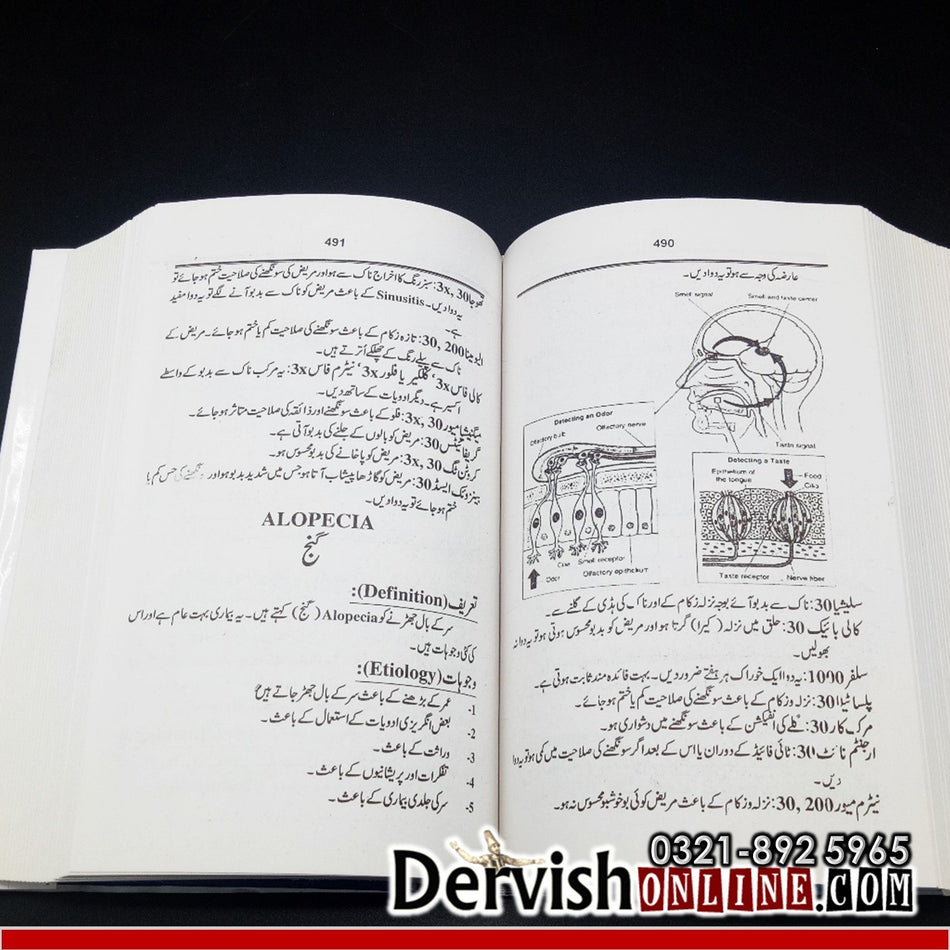 490
عارضہ کی وجہ سے ہو تو یہ دوا دیں۔
Smell signal
Smell and taste center
Taste signal
Detecting an Odor
Olfactory bulb
Olfactory nerve
Cilia
Smell receptor
Odor
Olfactory epithelium
Detecting a Taste
Epithelium of
the tongue
Food
Cilia
Taste receptor
Nerve fiber
سلیشیا 30: ناک سے بدبو آئے بوجہ نزلہ زکام کے اور ناک کی ہڈی کے گلنے سے۔
کالی بائیک 30: حلق میں نزلہ (کیرا) گرتا ہو اور مریض کو بدبو محسوس ہوتی ہو تو یہ دوا نہ
بھولیں۔
سلفر 1000: یہ دوا ایک خوراک ہر ہفتے ضرور دیں۔ بہت فائدہ مند ثابت ہوتی ہے۔
پلساٹیلا 30: نزلہ و زکام کے باعث سونگھنے کی صلاحیت کم یا ختم ہو جائے۔
مرک کار 30: گلے کی انفیکشن کے باعث سونگھنے میں دشواری ہو۔
ارجنٹم نائٹ 30: ٹائی فائیڈ کے دوران یا اس کے بعد اگر سونگھنے کی صلاحیت میں کمی ہو تو یہ دوا
دیں۔
نیٹرم میور 30, 200: نزلہ و زکام کے باعث مریض کو کوئی بو خوشبو محسوس نہ ہو۔
491
تھوجا 3x, 30: سبز رنگ کا اخراج ناک سے ہو اور مریض کی سونگھنے کی صلاحیت ختم ہو جائے تو
یہ دوا دیں۔ Sinusitis کے باعث مریض کو ناک سے بدبو آنے لگے تو یہ دوا مفید
ہے۔
ایلومینا 30, 200: تازہ زکام کے باعث سونگھنے کی صلاحیت کم یا ختم ہو جائے۔ مریض کے
ناک سے پیلے رنگ کے چھلکے اُترتے ہیں۔
کالی فاس 3x، کلکیر یا فلور 3x، نیٹرم فاس 3x: یہ مرکب ناک سے بدبو کے واسطے
اکسیر ہے۔ دیگر ادویات کے ساتھ دیں۔
میگنیشیا میور 3x, 30: فلو کے باعث سونگھنے اور ذائقہ کی صلاحیت متاثر ہو جائے۔
گریفائٹس 30: مریض کو بالوں کے جلنے کی بدبو آتی ہے۔
کرٹن ٹگ 3x, 30: مریض کو پاخانے کی بدبو محسوس ہو۔
بینزوئیک ایسڈ 30: مریض کو گاڑھا پیشاب آتا ہو جس میں شدید بدبو ہو اور سونگھنے کی حس کم یا
ختم ہو جائے تو یہ دوا دیں۔
ALOPECIA
گنج
تعریف (Definition):
سر کے بال جھڑنے کو Alopecia (گنج) کہتے ہیں۔ یہ بیماری بہت عام ہے اور اس
کی کئی وجوہات ہیں۔
وجوہات (Etiology):
1- عمر کے بڑھنے کے باعث سر کے بال جھڑ جاتے ہیں۔
2- بعض انگریزی ادویات کے استعمال کے باعث۔
3- وراثت کے باعث۔
4- تفکرات اور پریشانیوں کے باعث۔
5- سر کی جلدی بیماری کے باعث۔
0321-892 5965
Dervish ONLINE.COM